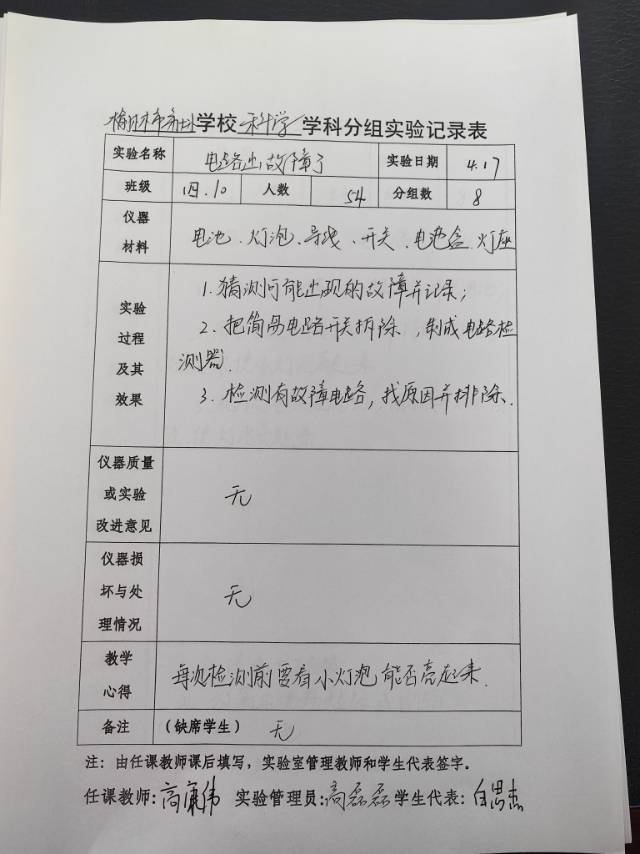 学校 科学 学科分组实验记录表
实验名称 电路出故障了 实验日期 4.17
班级 四.10 人数 54 分组数 8
仪器
材料
电池、灯泡、导线、开关、电池盒、灯座
实验
过程
及其
效果
1.猜测可能出现的故障并记录;
2.把简易电路开关拆除,制成电路检
测器.
3.检测有故障电路,找原因并排除.
仪器质量
或实验
改进意见
无
仪器损
坏与处
理情况
无
教学
心得
每次检测前要看小灯泡能否亮起来.
备注 (缺席学生) 无
注:由任课教师课后填写,实验室管理教师和学生代表签字。
任课教师:高康伟 实验管理员:高磊磊 学生代表:白思杰